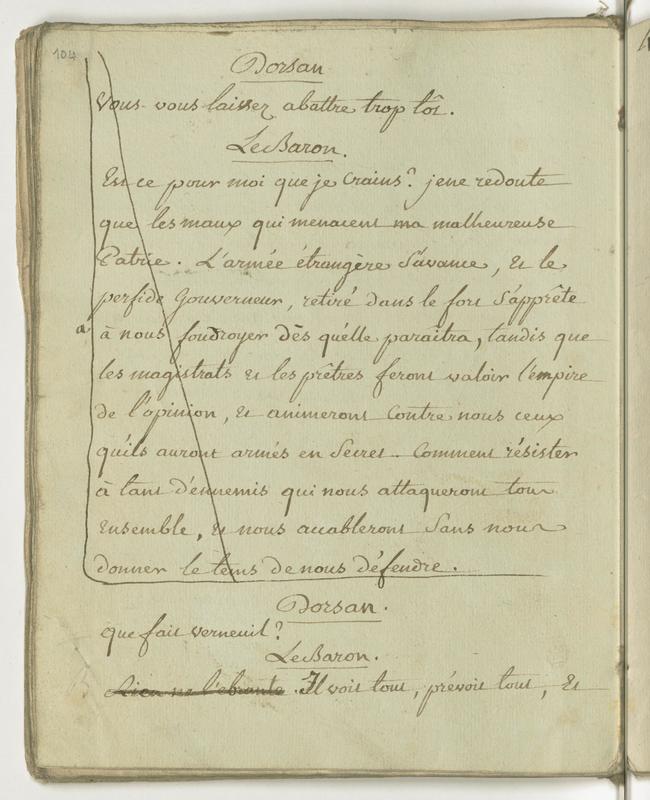 104
Dorsan
Vous vous laissez abattre trop tôt.
Le Baron.
Est ce pour moi que je Crains? je ne redoute
que les maux qui menacent ma malheureuse
Patrie. L'armée étrangère s'avance, et le
perfide Gouverneur, retiré dans le fort s'apprête
a à nous foudroyer dès qu'elle paraîtra, tandis que
les magistrats et les prêtres feront valoir l'empire
de l'opinion, et animeront Contre nous ceux
qu'ils auront armés en Secret. Comment résister
à tant d'ennemis qui nous attaqueront tous
Ensemble, et nous accableront Sans nous
donner le tems de nous défendre.
Dorsan.
que fait verneuil?
Le Baron.
Rien ne l'ebranle. Il voit tout, prévoit tout, et